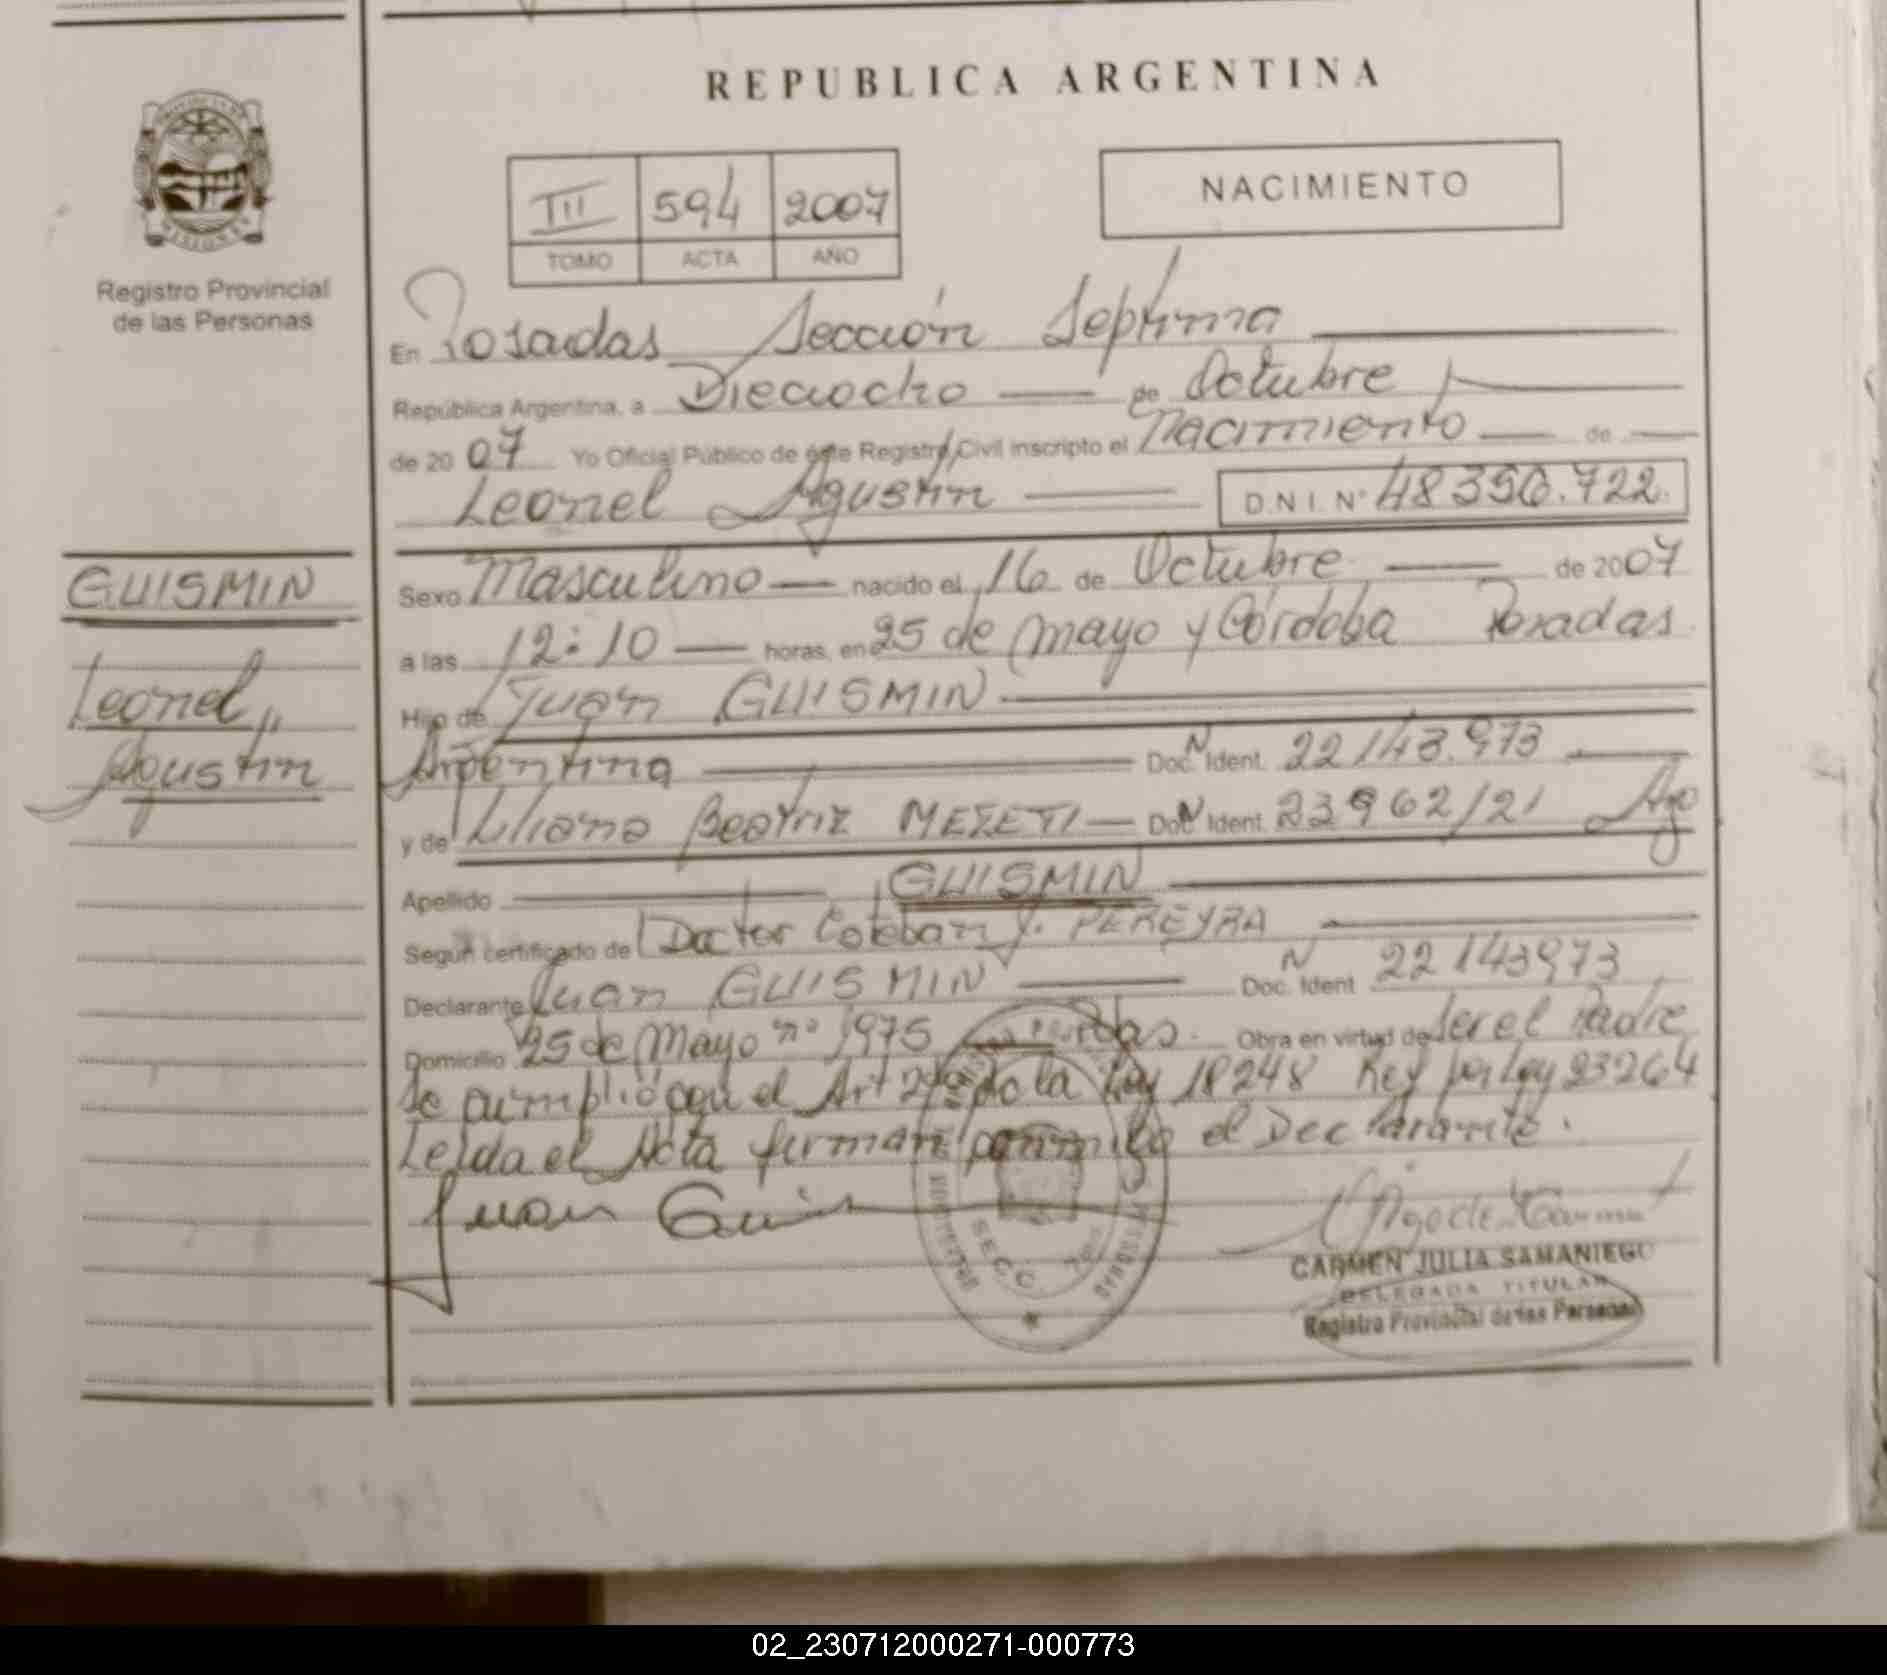 REPUBLICA ARGENTINA
III 594 2007
TOMO ACTA AÑO
NACIMIENTO
MISIONES
Registro Provincial
de las Personas
En Posadas Sección Septima
República Argentina, a Dieciocho de Octubre
de 2007 Yo Oficial Público de éste Registro Civil inscripto el Nacimiento de
Leonel Agustin D.N.I. Nº 48350.722.
GUISMIN
Leonel,,
Agustin
Sexo Masculino nacido el 16 de Octubre de 2007
a las 12:10 horas, en 25 de Mayo y Córdoba Posadas
Hijo de Juan GUISMIN
Argentina Doc. N Ident. 22143.973
y de Liliana Beatriz MEZETI Doc. N Ident. 23962121 Arg
Apellido GUISMIN
Según certificado de Doctor Esteban J. PEREYRA
Declarante Juan GUISMIN Doc. N Ident 22143973
Domicilio 25 de Mayo nº 1975 Obra en virtud de ser el Padre
Se cumplió con el Art de la Ley 18248 Ref por Ley 23264
Leida el Acta firman conmigo el Declarante.
Juan Guis
SECC. 7
CARMEN JULIA SAMANIEGO
DELEGADA TITULAR
Registro Provincial de las Personas
02_230712000271-000773